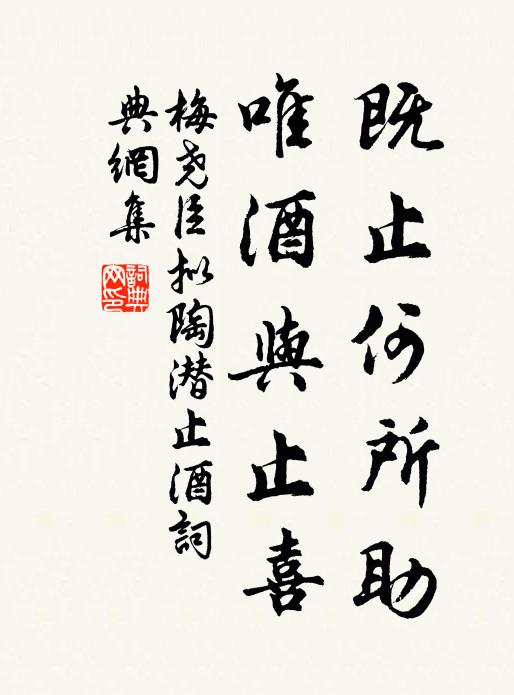 既止何所助
唯酒與止喜
梅尧臣拟陶潜止酒詞
典網集
詞典網印